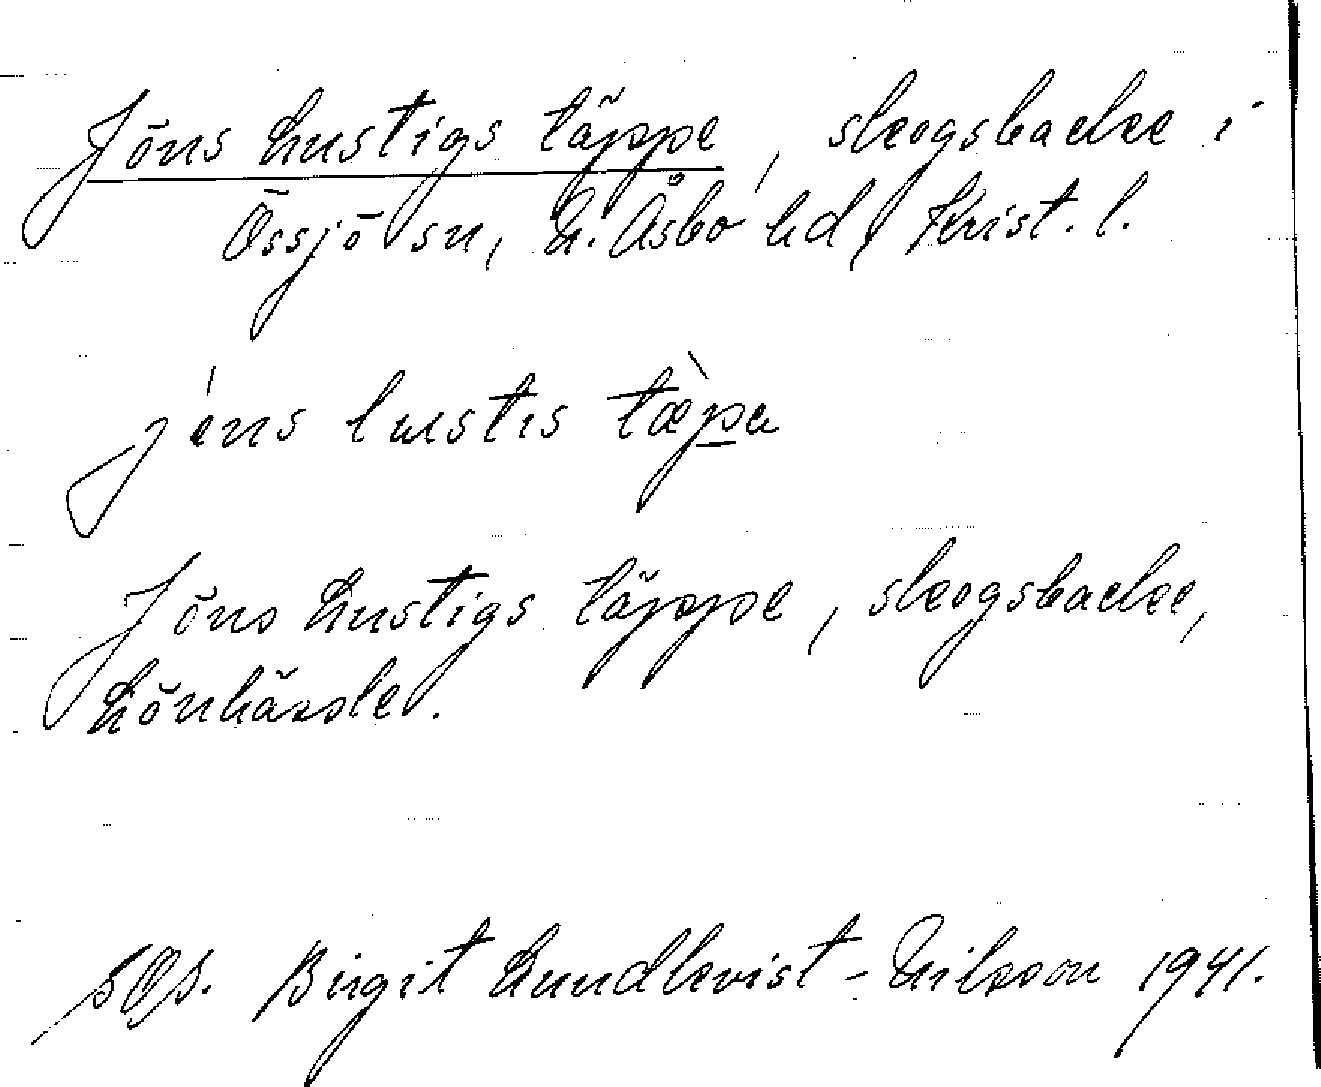 Jöns Lustigs täppe, skogsbacke i
Össjö sn, N. Åsbo hd, Krist. l.
jens lustis tæpa
Jöns Lustigs täppe, skogsbacke,
Lönhässle.
Birgit Lundkvist-Nilsson 1941.